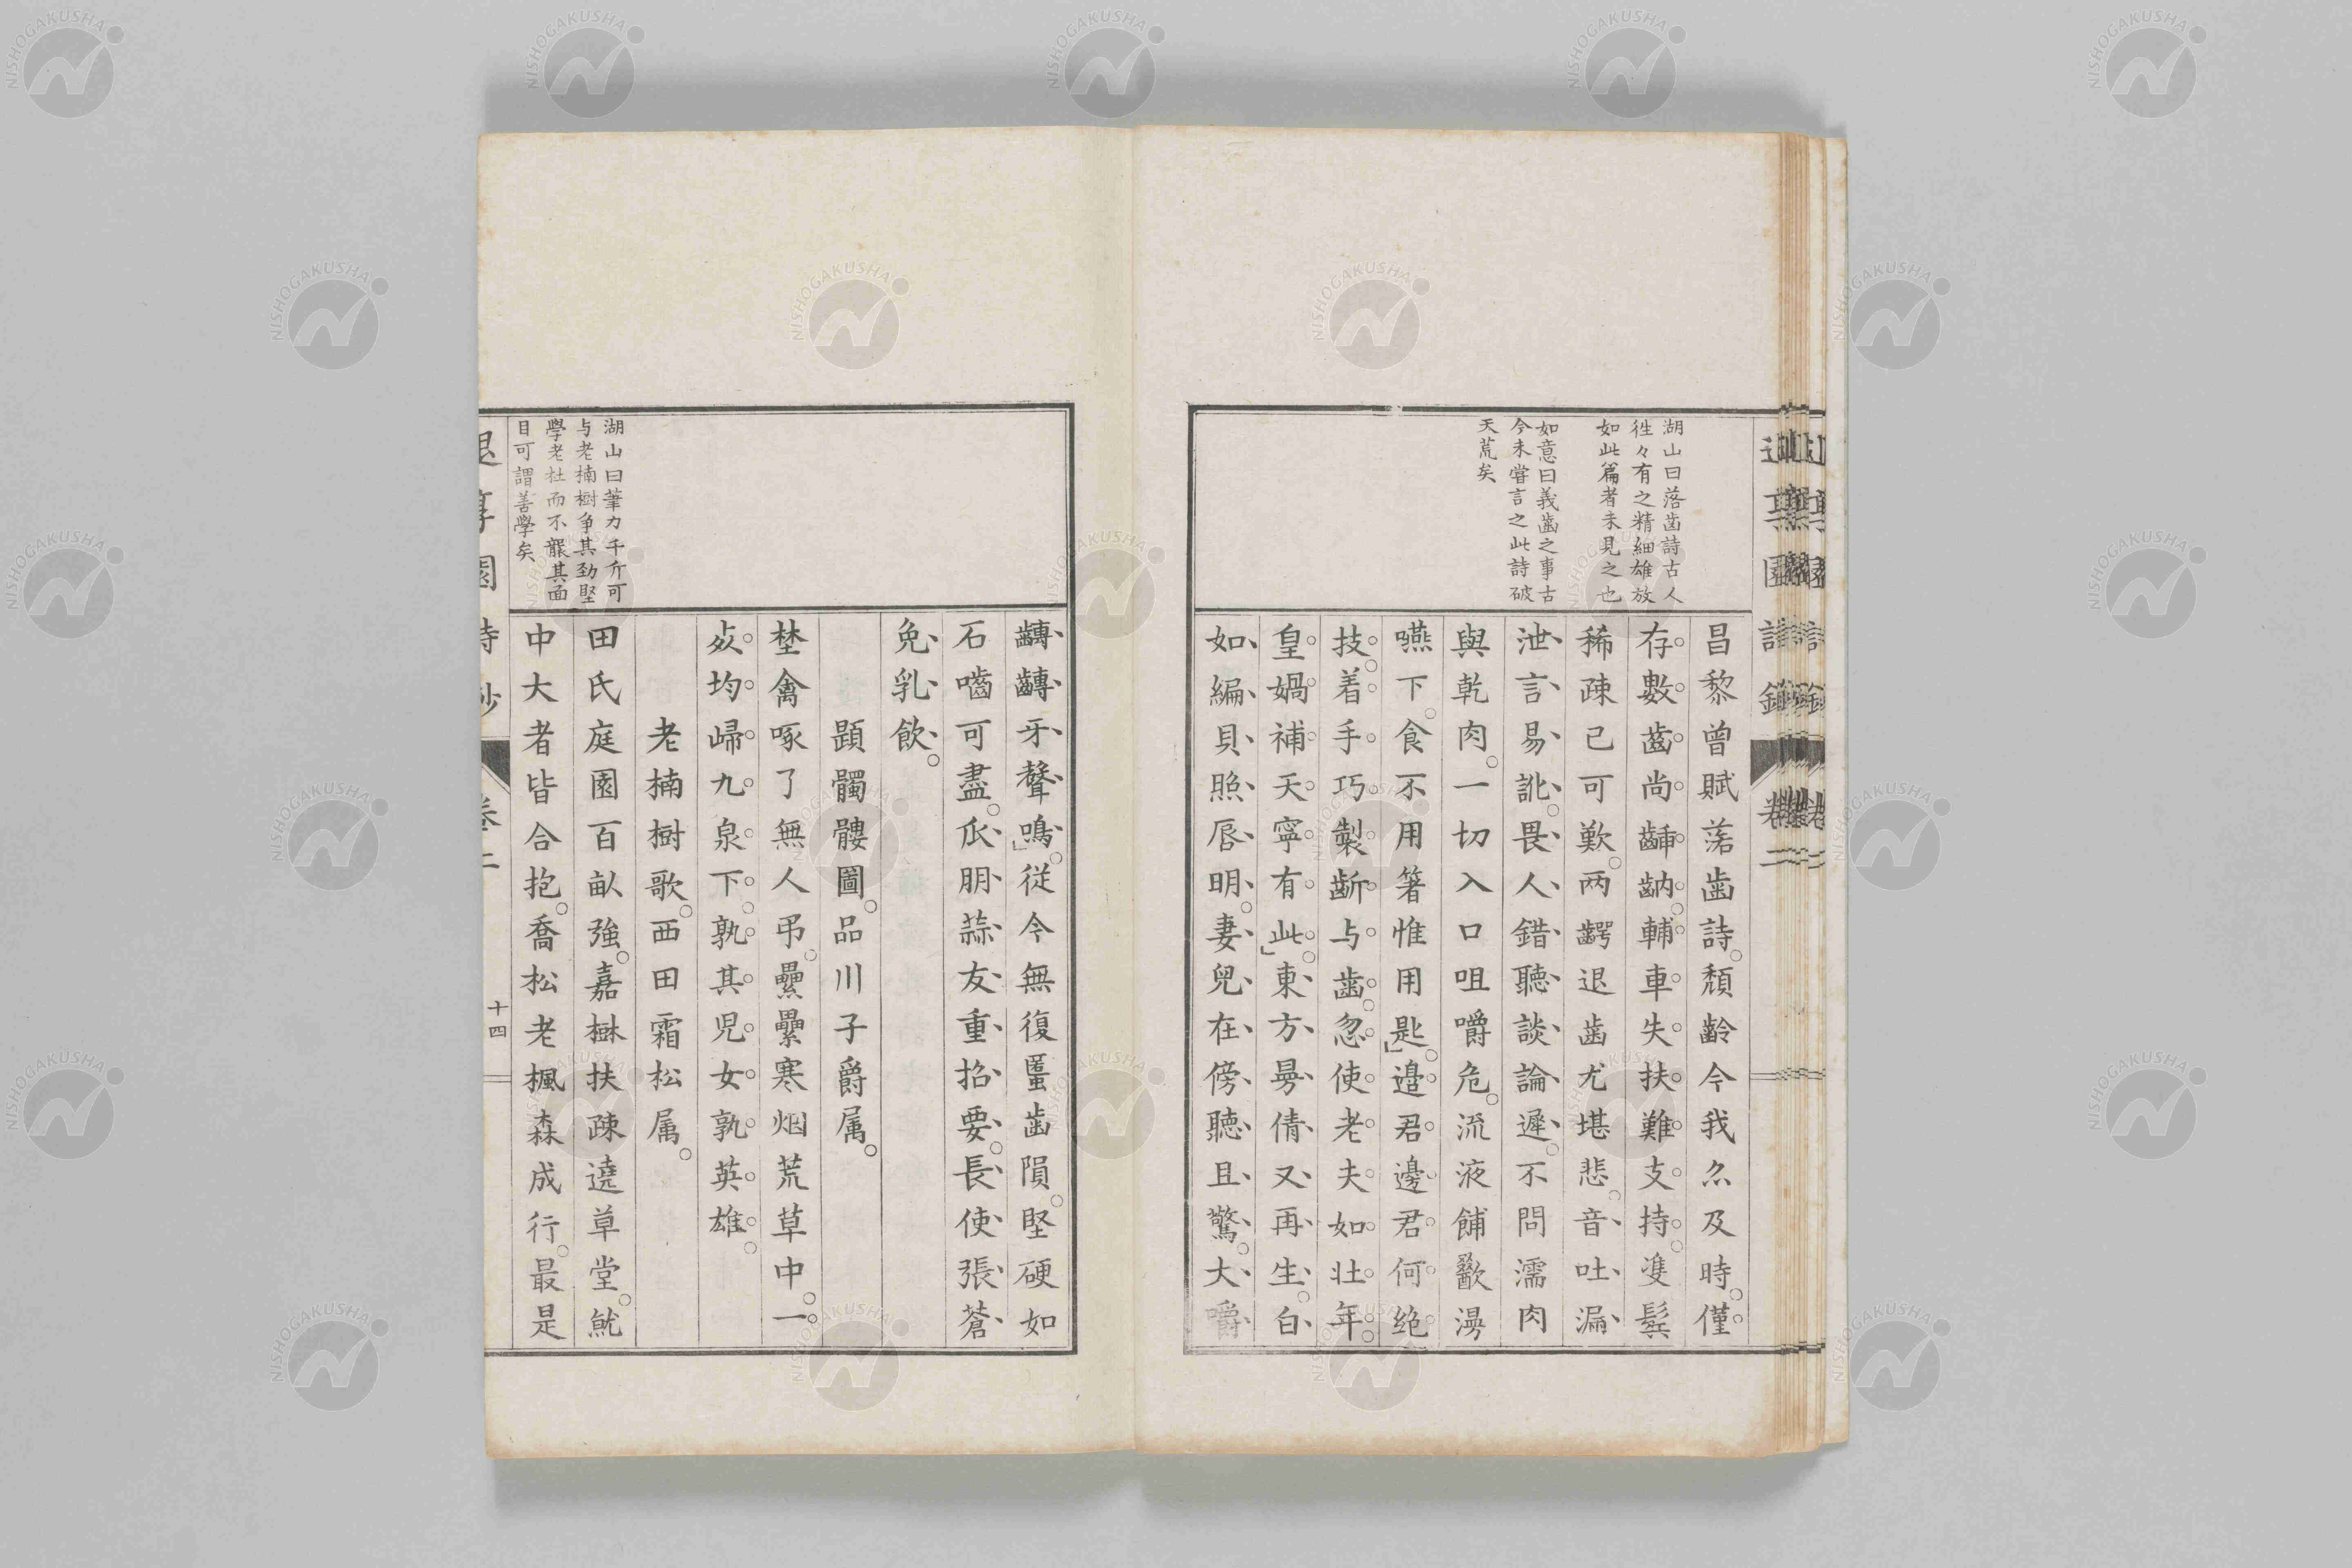 湖山曰落齒詩古人
徃々有之精細雄放
如此篇者未見之也
如意曰義齒之事古
今未嘗言之此詩破
天荒矣
昌黎曾賦落齒詩。頽齡今我亦及時。僅
存數齒尚齲齝輔車失扶難支持。隻鬂
稀疎已可歎。两齶退齒尤堪悲。音吐漏
泄言易訛。畏人錯聽談論遲。不問濡肉
與乾肉。一切入口咀嚼危。流液餔歠漫
嚥下。食不用箸惟用匙。邉君邊君何绝
技。着手巧製齗与齒。忽使老夫如壯年。
皇媧補天寧有此。東方曼倩又再生。白
如編貝照唇明。妻兒在傍聽且驚。大嚼
齳齳牙聲鳴。従今無復匿齒隕。堅硬如
石嚙可盡。瓜朋蒜友重招要。長使張蒼
免乳飲。
題髑髏圖。品川子爵属。
埜禽啄了無人弔。纍纍寒烟荒草中。一
㸃均歸九泉下。孰其児女孰英雄。
老楠樹歌。西田霜松属。
田氏庭園百畝強。嘉樹扶疎遶草堂。就
中大者皆合抱。喬松老楓森成行。最是
湖山曰筆力千斤可
与老楠樹争其勁堅
學老杜而不襲其面
目可謂善學矣
卷二
十四
NISHOGAKUSHA